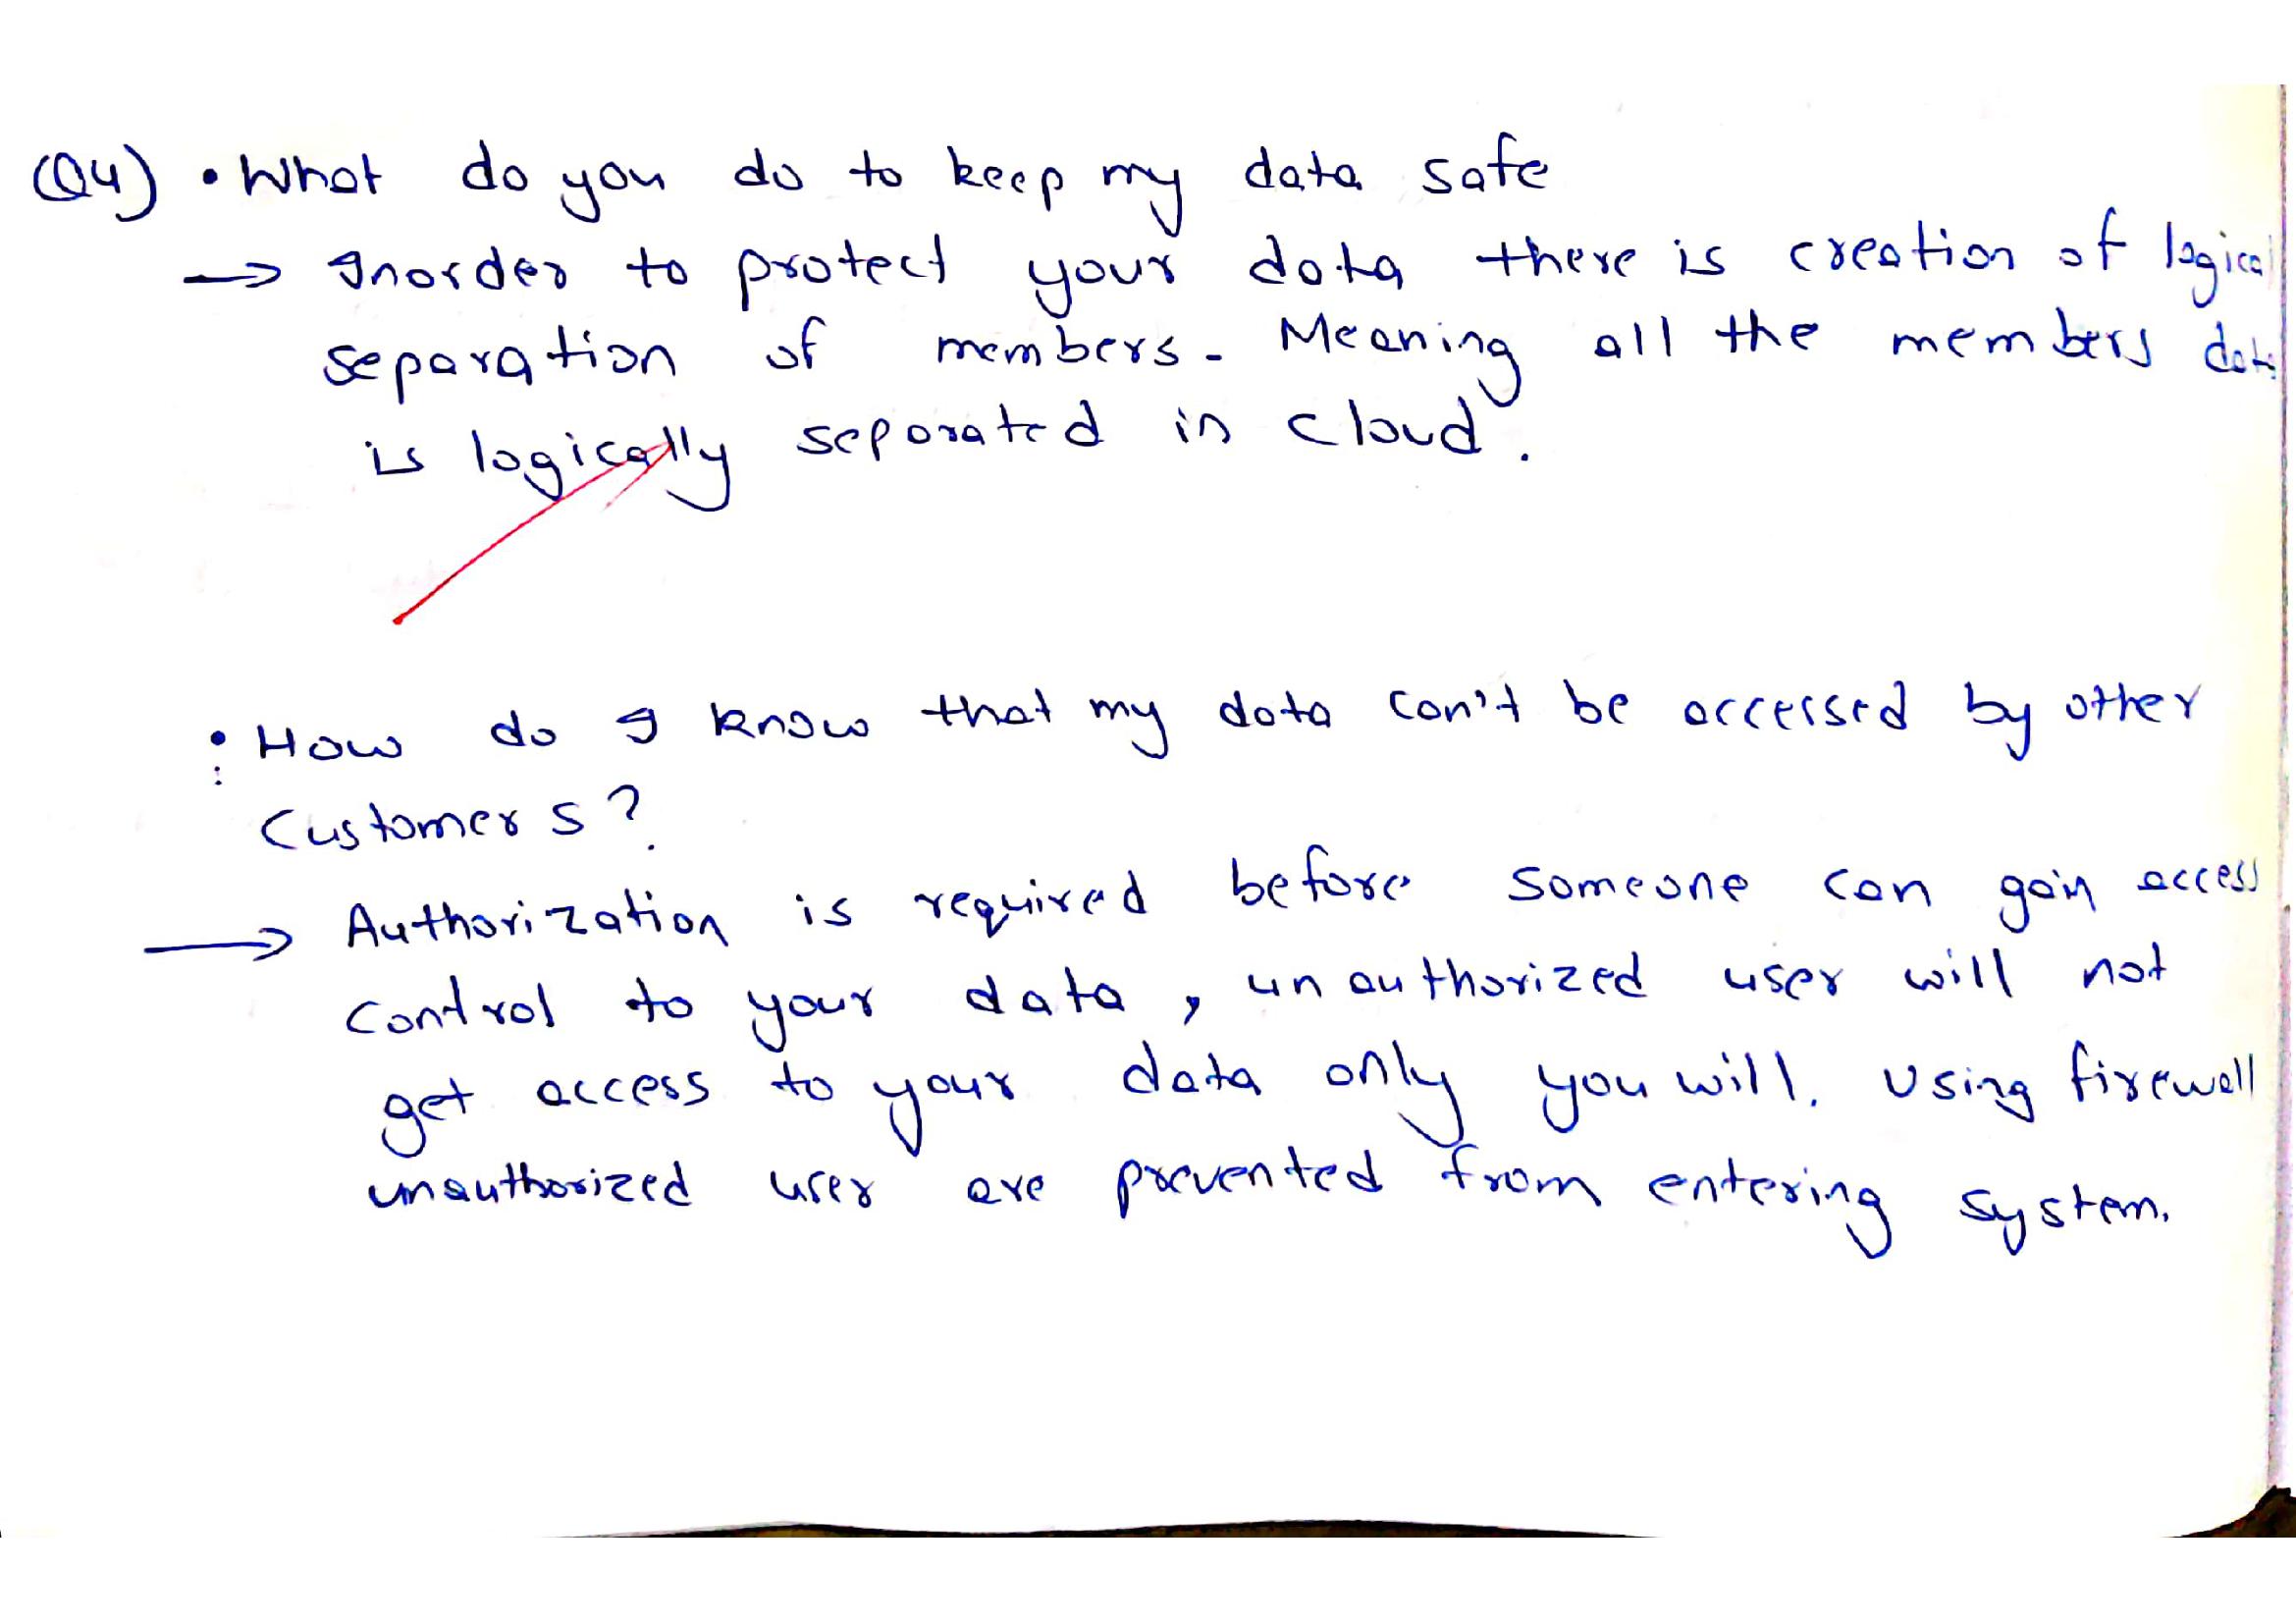 (Q4) • What do you do to keep my data safe
→ Inorder to protect your data there is creation of logical
separation of members. Meaning all the members data
is logically separated in cloud.
• How do I know that my data can't be accessed by other
Customers?
→ Authorization is required before someone can gain access
control to your data, unauthorized user will not
get access to your data only you will. Using firewall
unauthorized user are prevented from entering system.